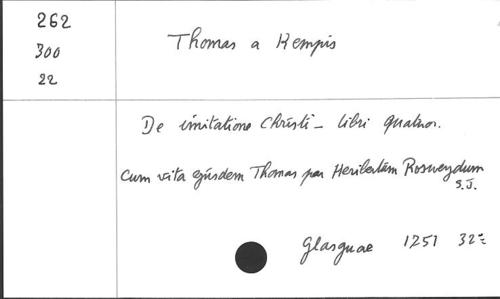 262
300
22
Thomas a Kempis
De imitatione Christi - libri quatuor.
Cum vita ejusdem Thomas per Heribertum Rosweydum
S.J.
Glasguae 1751 32=